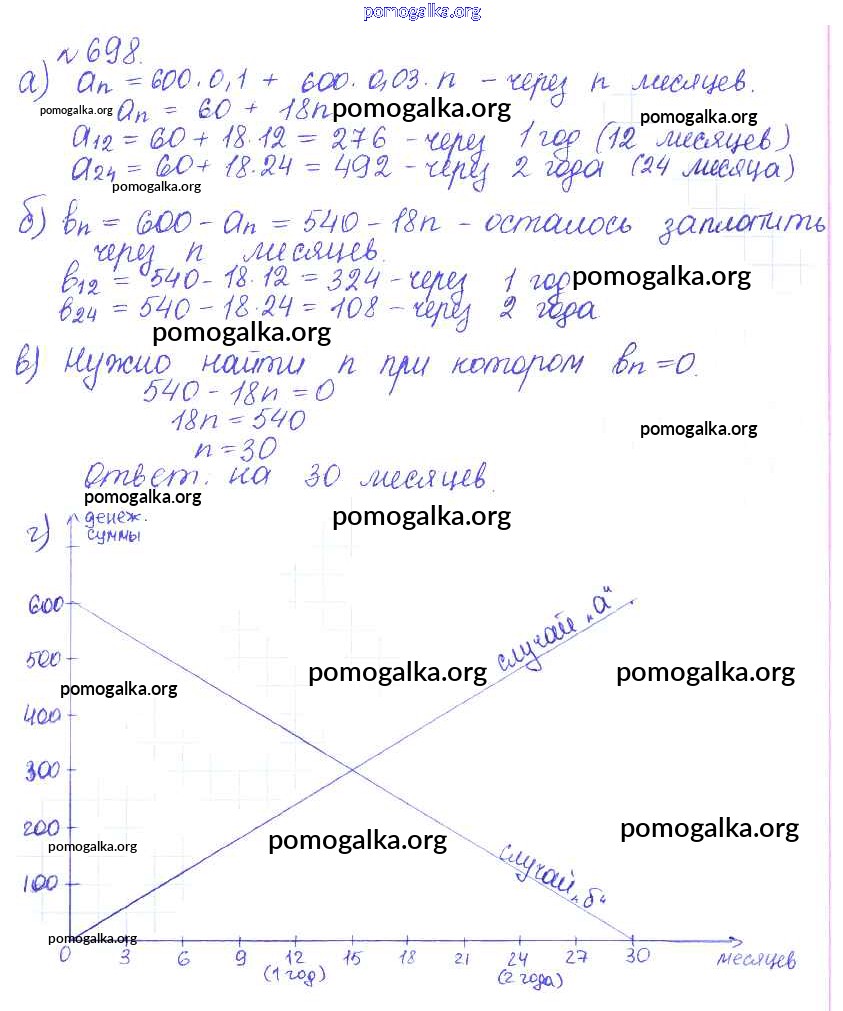 pomogalka.org
№ 698.
а) an = 600·0,1 + 600·0,03·n – через n месяцев.
pomogalka.org an = 60 + 18n pomogalka.org pomogalka.org
a12 = 60 + 18·12 = 276 – через 1 год (12 месяцев)
a24 = 60 + 18·24 = 492 – через 2 года (24 месяца)
pomogalka.org
б) bn = 600 – an = 540 – 18n – осталось заплатить
через n месяцев.
b12 = 540 – 18·12 = 324 – через 1 год pomogalka.org
b24 = 540 – 18·24 = 108 – через 2 года
pomogalka.org
в) Нужно найти n при котором bn = 0.
540 – 18n = 0
18n = 540
n = 30
pomogalka.org
Ответ: на 30 месяцев.
pomogalka.org
pomogalka.org
г) денеж.
суммы
600
случай „а“
500
pomogalka.org pomogalka.org
pomogalka.org
400
300
200
pomogalka.org
pomogalka.org
pomogalka.org
случай „б“
100
pomogalka.org
0 3 6 9 12 15 18 21 24 27 30 месяцев
(1 год) (2 года)